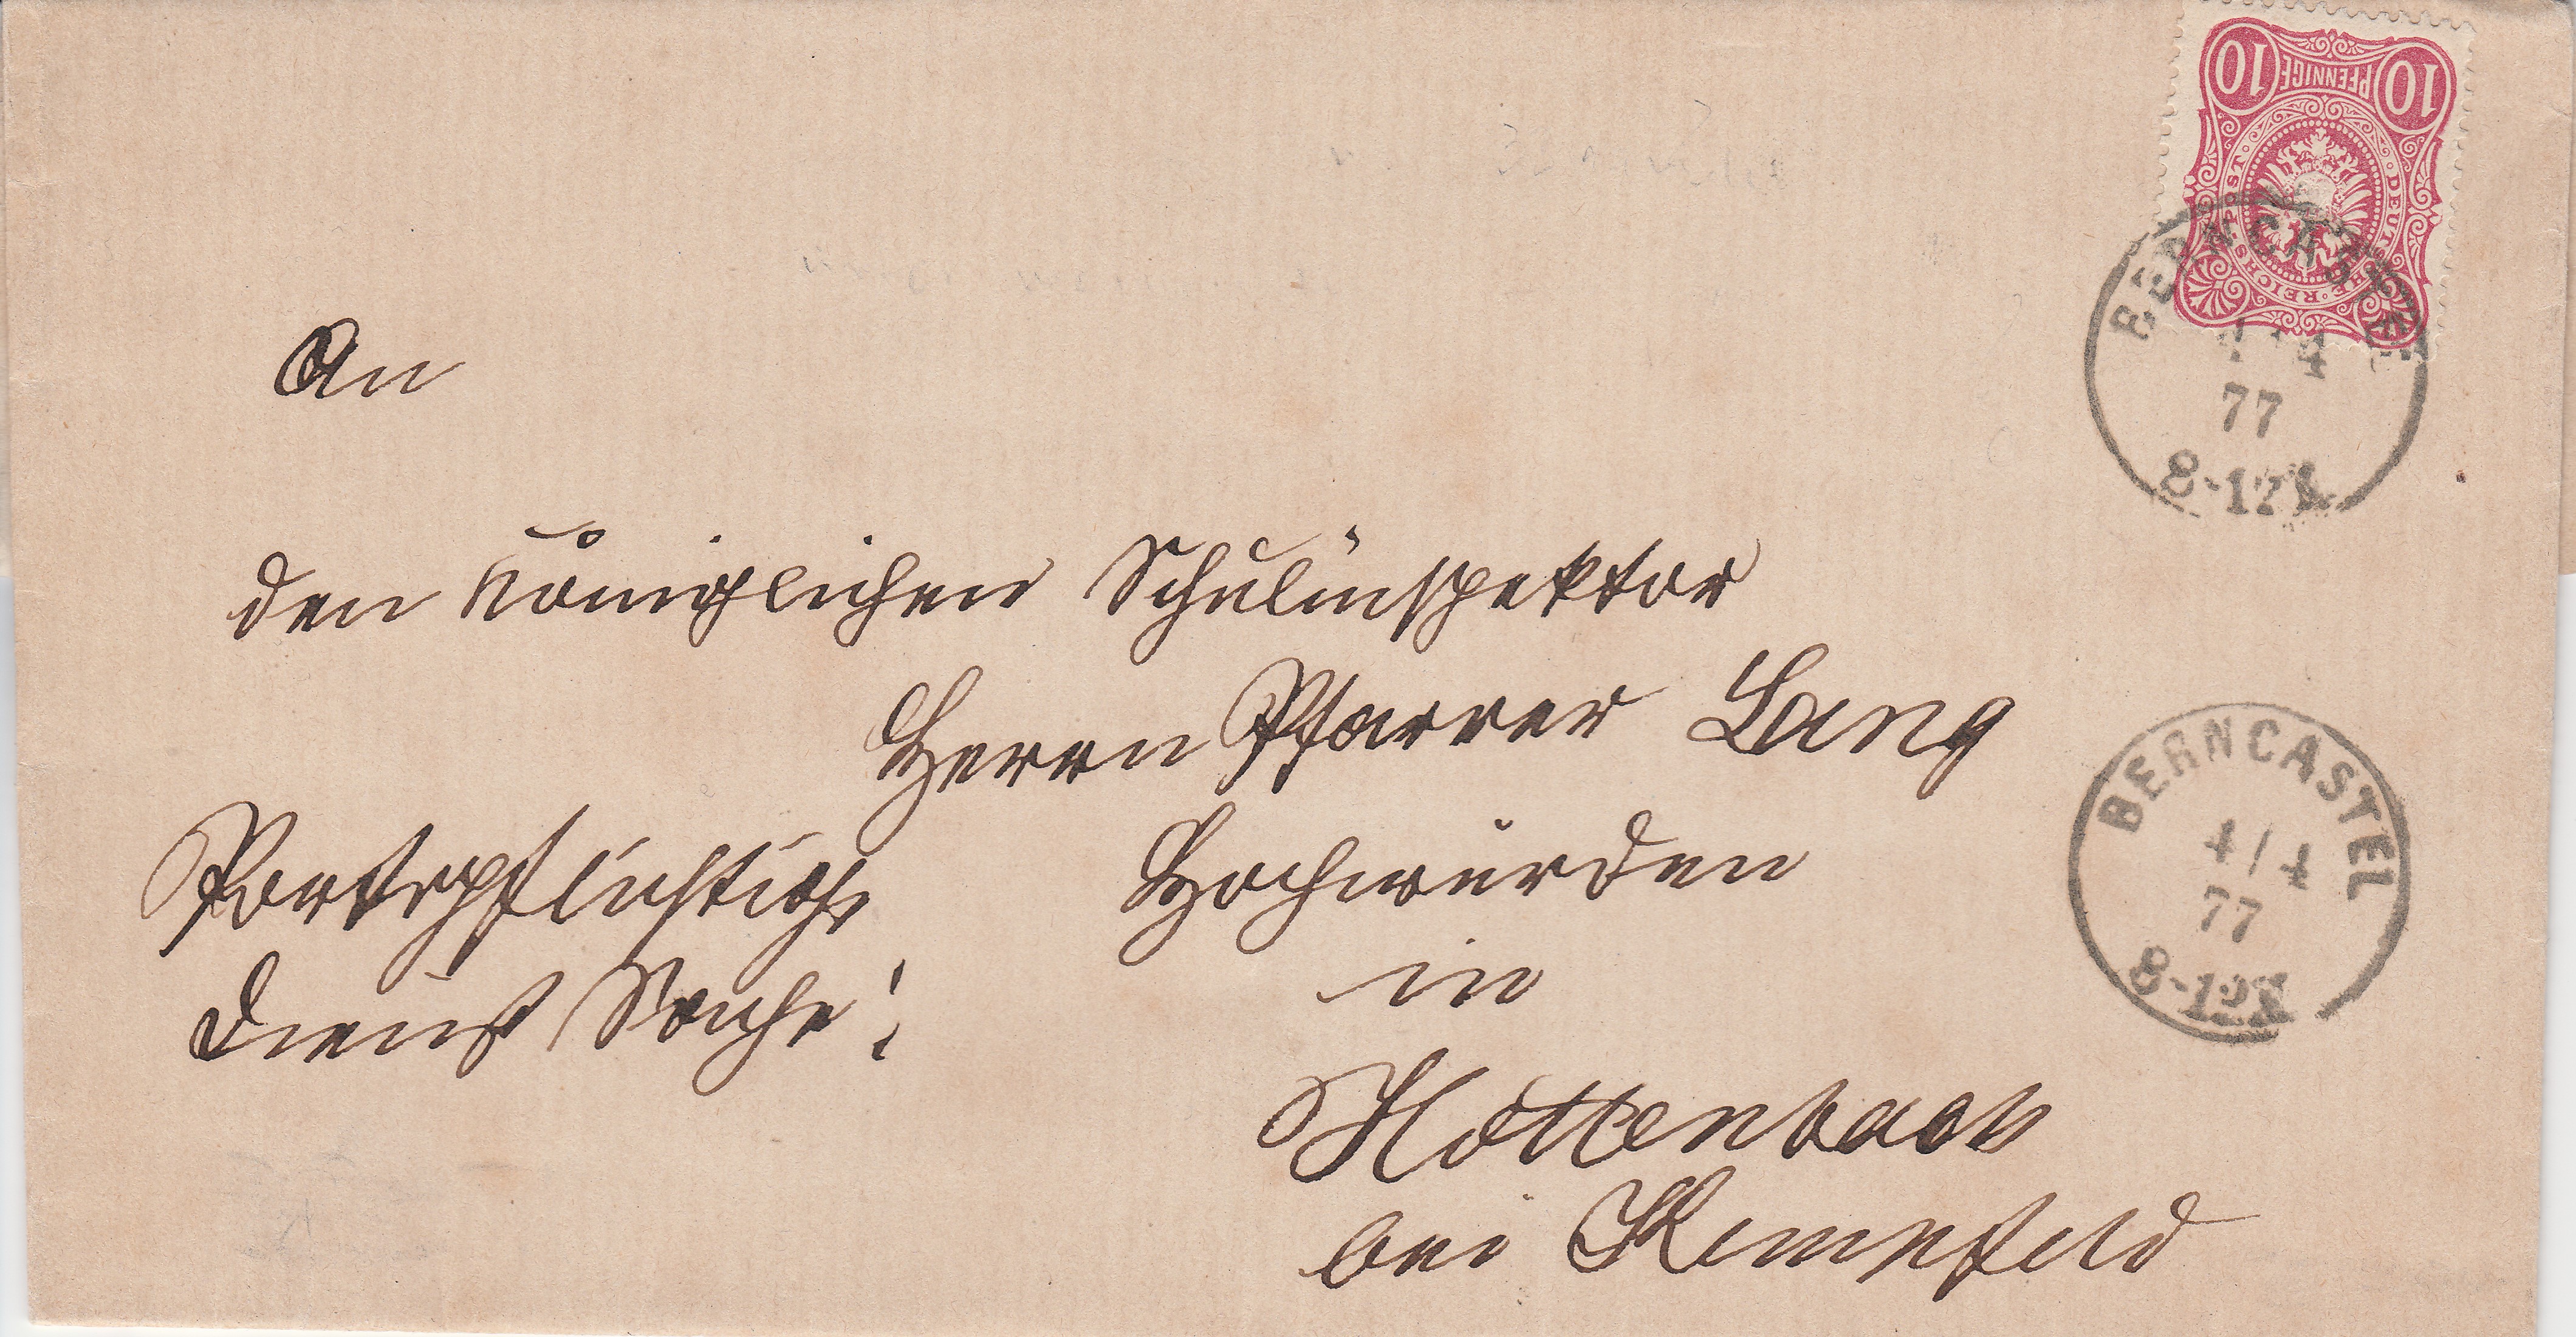 10 PFENNIGE 10
DEUTSCHE REICHS-POST
BERNCASTEL
4/4
77
8-12V
An
den Königlichen Schulinspektor
Herrn Pfarrer Lang
Hochwürden
in
Hottenbach
bei
Portopflichtige
Dienst Sache!
BERNCASTEL
4/4
77
8-12V